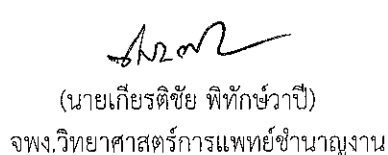 (นายเกียรติชัย พิทักษ์วาปี)
จพง.วิทยาศาสตร์การแพทย์ชำนาญงาน